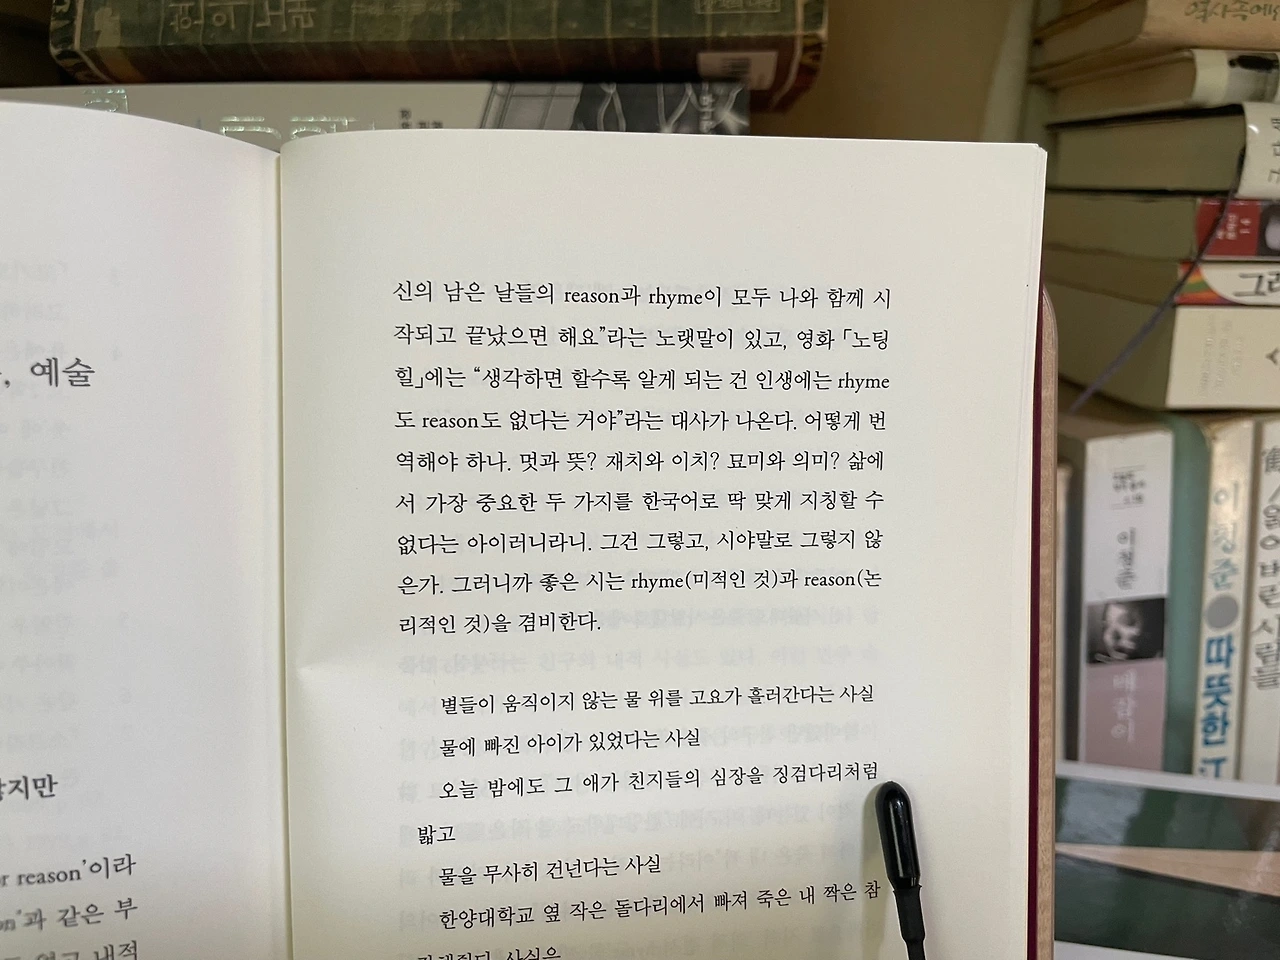 한의 노래
, 예술
않지만
or reason’이라
on’과 같은 부
신의 남은 날들의 reason과 rhyme이 모두 나와 함께 시
작되고 끝났으면 해요”라는 노랫말이 있고, 영화 「노팅
힐」에는 “생각하면 할수록 알게 되는 건 인생에는 rhyme
도 reason도 없다는 거야”라는 대사가 나온다. 어떻게 번
역해야 하나. 멋과 뜻? 재치와 이치? 묘미와 의미? 삶에
서 가장 중요한 두 가지를 한국어로 딱 맞게 지칭할 수
없다는 아이러니라니. 그건 그렇고, 시야말로 그렇지 않
은가. 그러니까 좋은 시는 rhyme(미적인 것)과 reason(논
리적인 것)을 겸비한다.
별들이 움직이지 않는 물 위를 고요가 흘러간다는 사실
물에 빠진 아이가 있었다는 사실
오늘 밤에도 그 애가 친지들의 심장을 징검다리처럼
밟고
물을 무사히 건넌다는 사실
한양대학교 옆 작은 돌다리에서 빠져 죽은 내 짝은 참
사실은
이청준
이청준
따뜻한
잃어버린 사람들